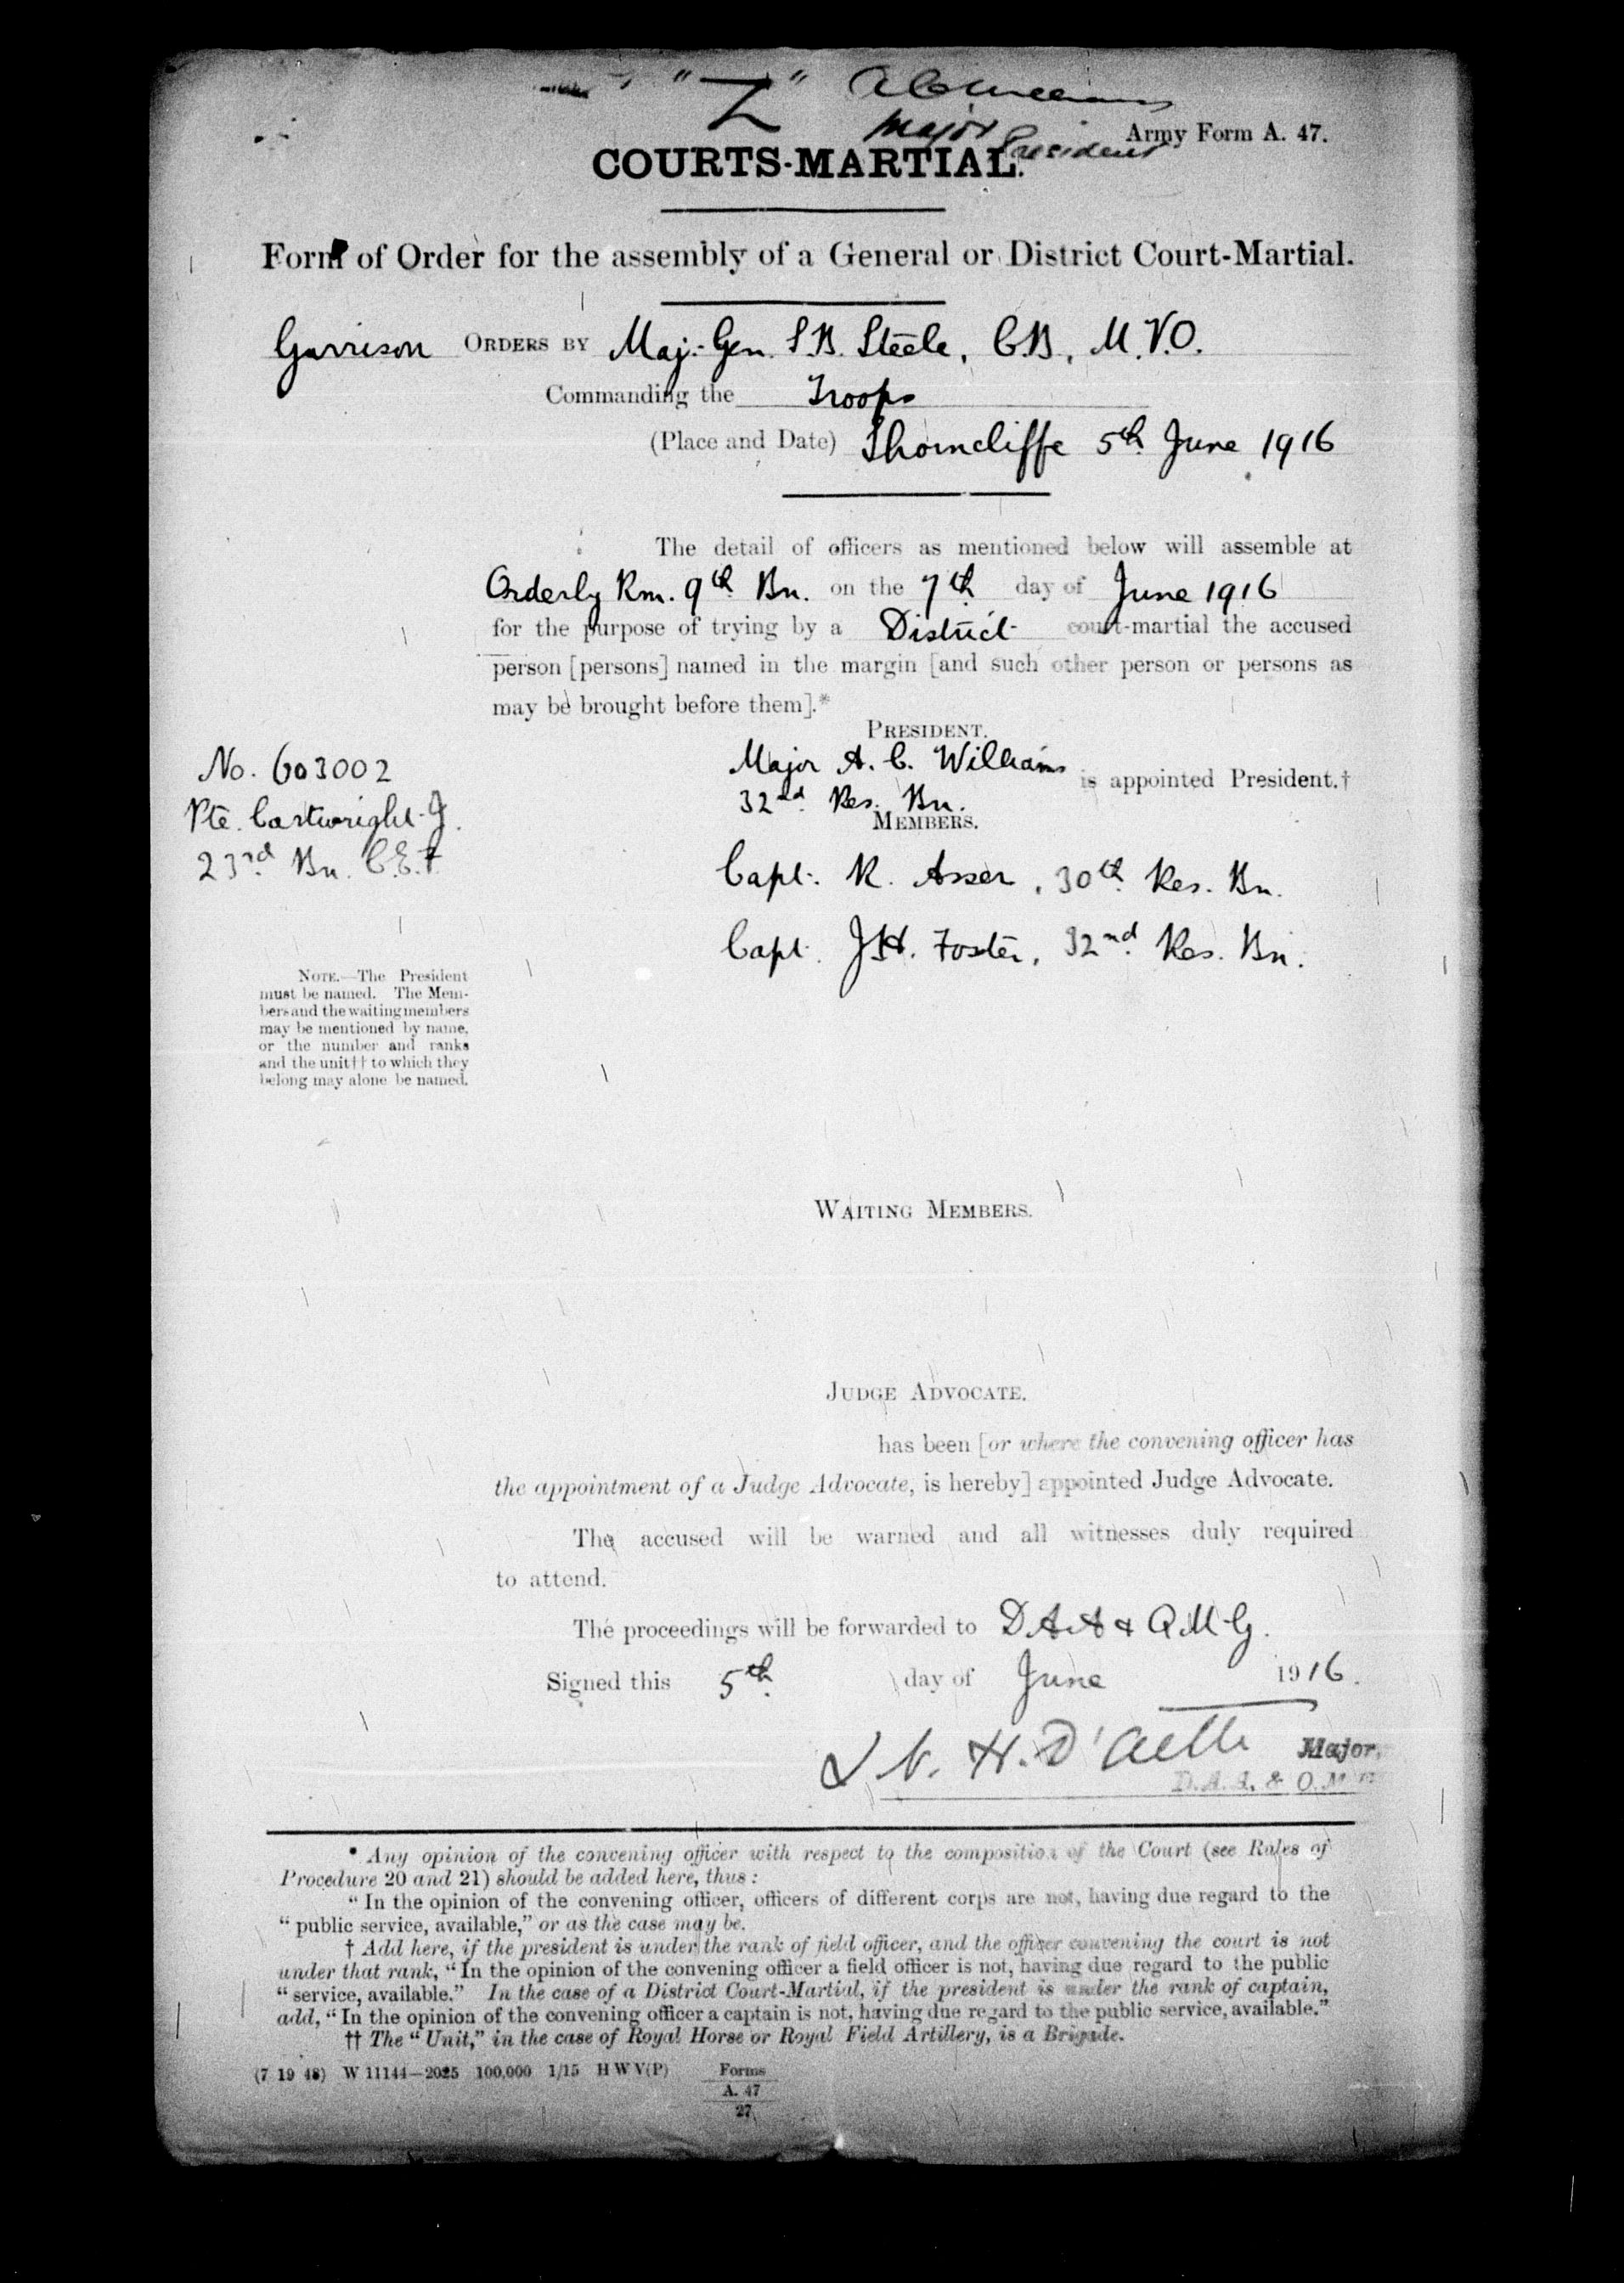 "Z" A C Williams
Major
President
Army Form A. 47.
COURTS-MARTIAL.
Form of Order for the assembly of a General or District Court-Martial.
Garrison ORDERS BY Maj.-Gen. S.B. Steele, C.B., M.V.O.
Commanding the Troops
(Place and Date) Shorncliffe 5th June 1916
The detail of officers as mentioned below will assemble at
Orderly Rm. 9th Bn. on the 7th day of June 1916
for the purpose of trying by a District court-martial the accused
person [persons] named in the margin [and such other person or persons as
may be brought before them].*
PRESIDENT.
No. 603002
Pte. Cartwright J.
23rd Bn. C.E.F.
Major A. C. Williams is appointed President.†
32nd Res. Bn.
MEMBERS.
Capt. R. Asser, 30th Res. Bn.
Capt. J.H. Foster, 32nd Res. Bn.
NOTE.—The President
must be named. The Mem-
bers and the waiting members
may be mentioned by name,
or the number and ranks
and the unit†† to which they
belong may alone be named.
WAITING MEMBERS.
JUDGE ADVOCATE.
has been [or where the convening officer has
the appointment of a Judge Advocate, is hereby] appointed Judge Advocate.
The accused will be warned and all witnesses duly required
to attend.
The proceedings will be forwarded to D A A & Q M G.
Signed this 5th day of June 1916.
H. D'
Major,
D.A.A. & Q.M.G.
* Any opinion of the convening officer with respect to the composition of the Court (see Rules of
Procedure 20 and 21) should be added here, thus:
"In the opinion of the convening officer, officers of different corps are not, having due regard to the
"public service, available," or as the case may be.
† Add here, if the president is under the rank of field officer, and the officer convening the court is not
under that rank, "In the opinion of the convening officer a field officer is not, having due regard to the public
"service, available." In the case of a District Court-Martial, if the president is under the rank of captain,
add, "In the opinion of the convening officer a captain is not, having due regard to the public service, available."
†† The "Unit," in the case of Royal Horse or Royal Field Artillery, is a Brigade.
(7 19 48) W 11144—2025 100,000 1/15 H W V(P) Forms
A. 47
27